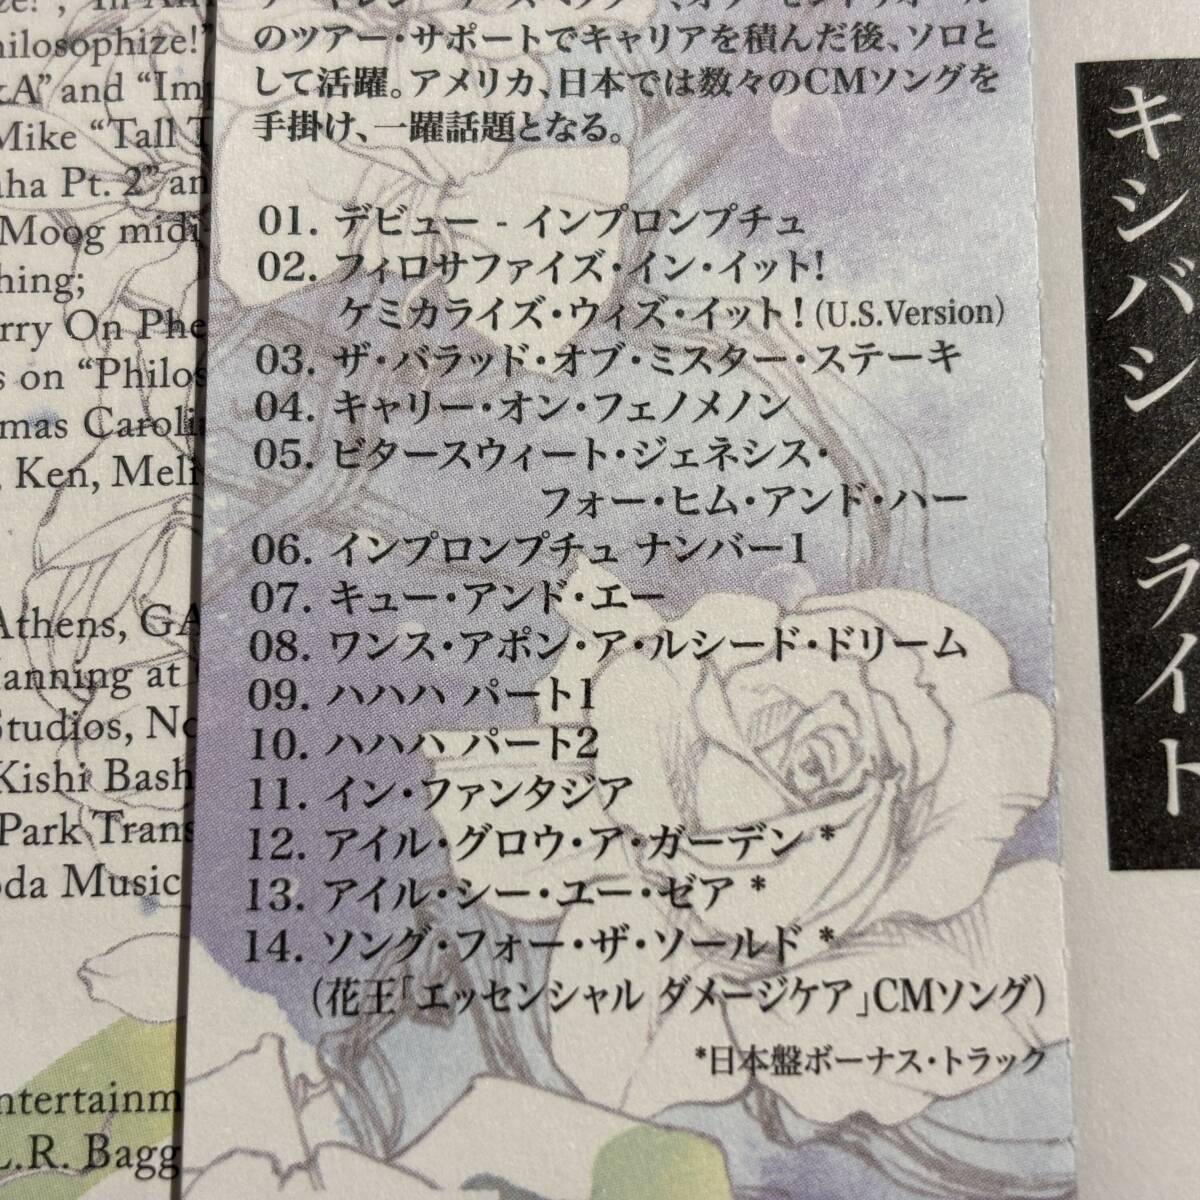 のツアー・サポートでキャリアを積んだ後、ソロと
して活躍。アメリカ、日本では数々のCMソングを
手掛け、一躍話題となる。
01. デビュー - インプロンプチュ
02. フィロサファイズ・イン・イット!
ケミカライズ・ウィズ・イット! (U.S.Version)
03. ザ・バラッド・オブ・ミスター・ステーキ
04. キャリー・オン・フェノメノン
05. ビタースウィート・ジェネシス・
フォー・ヒム・アンド・ハー
06. インプロンプチュ ナンバー1
07. キュー・アンド・エー
08. ワンス・アポン・ア・ルシード・ドリーム
09. ハハハ パート1
10. ハハハ パート2
11. イン・ファンタジア
12. アイル・グロウ・ア・ガーデン *
13. アイル・シー・ユー・ゼア *
14. ソング・フォー・ザ・ソールド *
(花王「エッセンシャル ダメージケア」CMソング)
*日本盤ボーナス・トラック
キシバシ/ライト
and
Mike "Tall
Pt. 2"
Moog midi
On
on
Ken,
Athens, GA
at
Studios,
Kishi Bash
Park
Music
L.R. Bagg